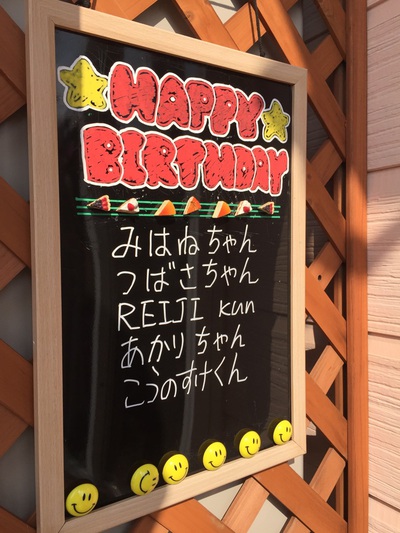 HAPPY
BIRTHDAY
みはねちゃん
つばさちゃん
REIJI kun
あかりちゃん
こうのすけくん